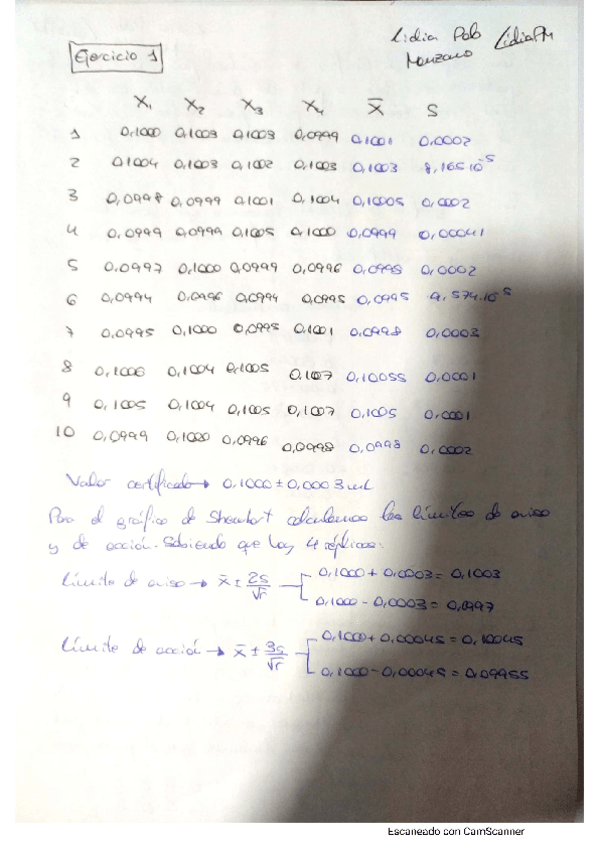 Ejercicio 1
Lidia Palo LidiaPM
Manzano
X₁ X₂ X₃ X₄ X̄ S
1 0,1000 0,1003 0,1003 0,0999 0,1001 0,0002
2 0,1004 0,1003 0,1002 0,1003 0,1003 8,165·10⁻⁵
3 0,0998 0,0999 0,1001 0,1004 0,10005 0,0002
4 0,0999 0,0999 0,1005 0,1000 0,0999 0,00041
5 0,0997 0,1000 0,0999 0,0996 0,0998 0,0002
6 0,0994 0,0996 0,0994 0,0995 0,0995 9,574·10⁻⁵
7 0,0995 0,1000 0,0995 0,1001 0,0998 0,0003
8 0,1006 0,1004 0,1005 0,1007 0,10055 0,0001
9 0,1005 0,1004 0,1005 0,1007 0,1005 0,0001
10 0,0999 0,1000 0,0996 0,0998 0,0998 0,0002
Valor certificado → 0,1000 ± 0,0003 mL
Para el gráfico de Shewhart calculamos los límites de aviso
y de acción. Sabiendo que hay 4 réplicas:
Límite de aviso → x̄ ± 2s/√r
0,1000 + 0,0003 = 0,1003
0,1000 - 0,0003 = 0,0997
Límite de acción → x̄ ± 3s/√r
0,1000 + 0,00045 = 0,10045
0,1000 - 0,00045 = 0,09955
Escaneado con CamScanner